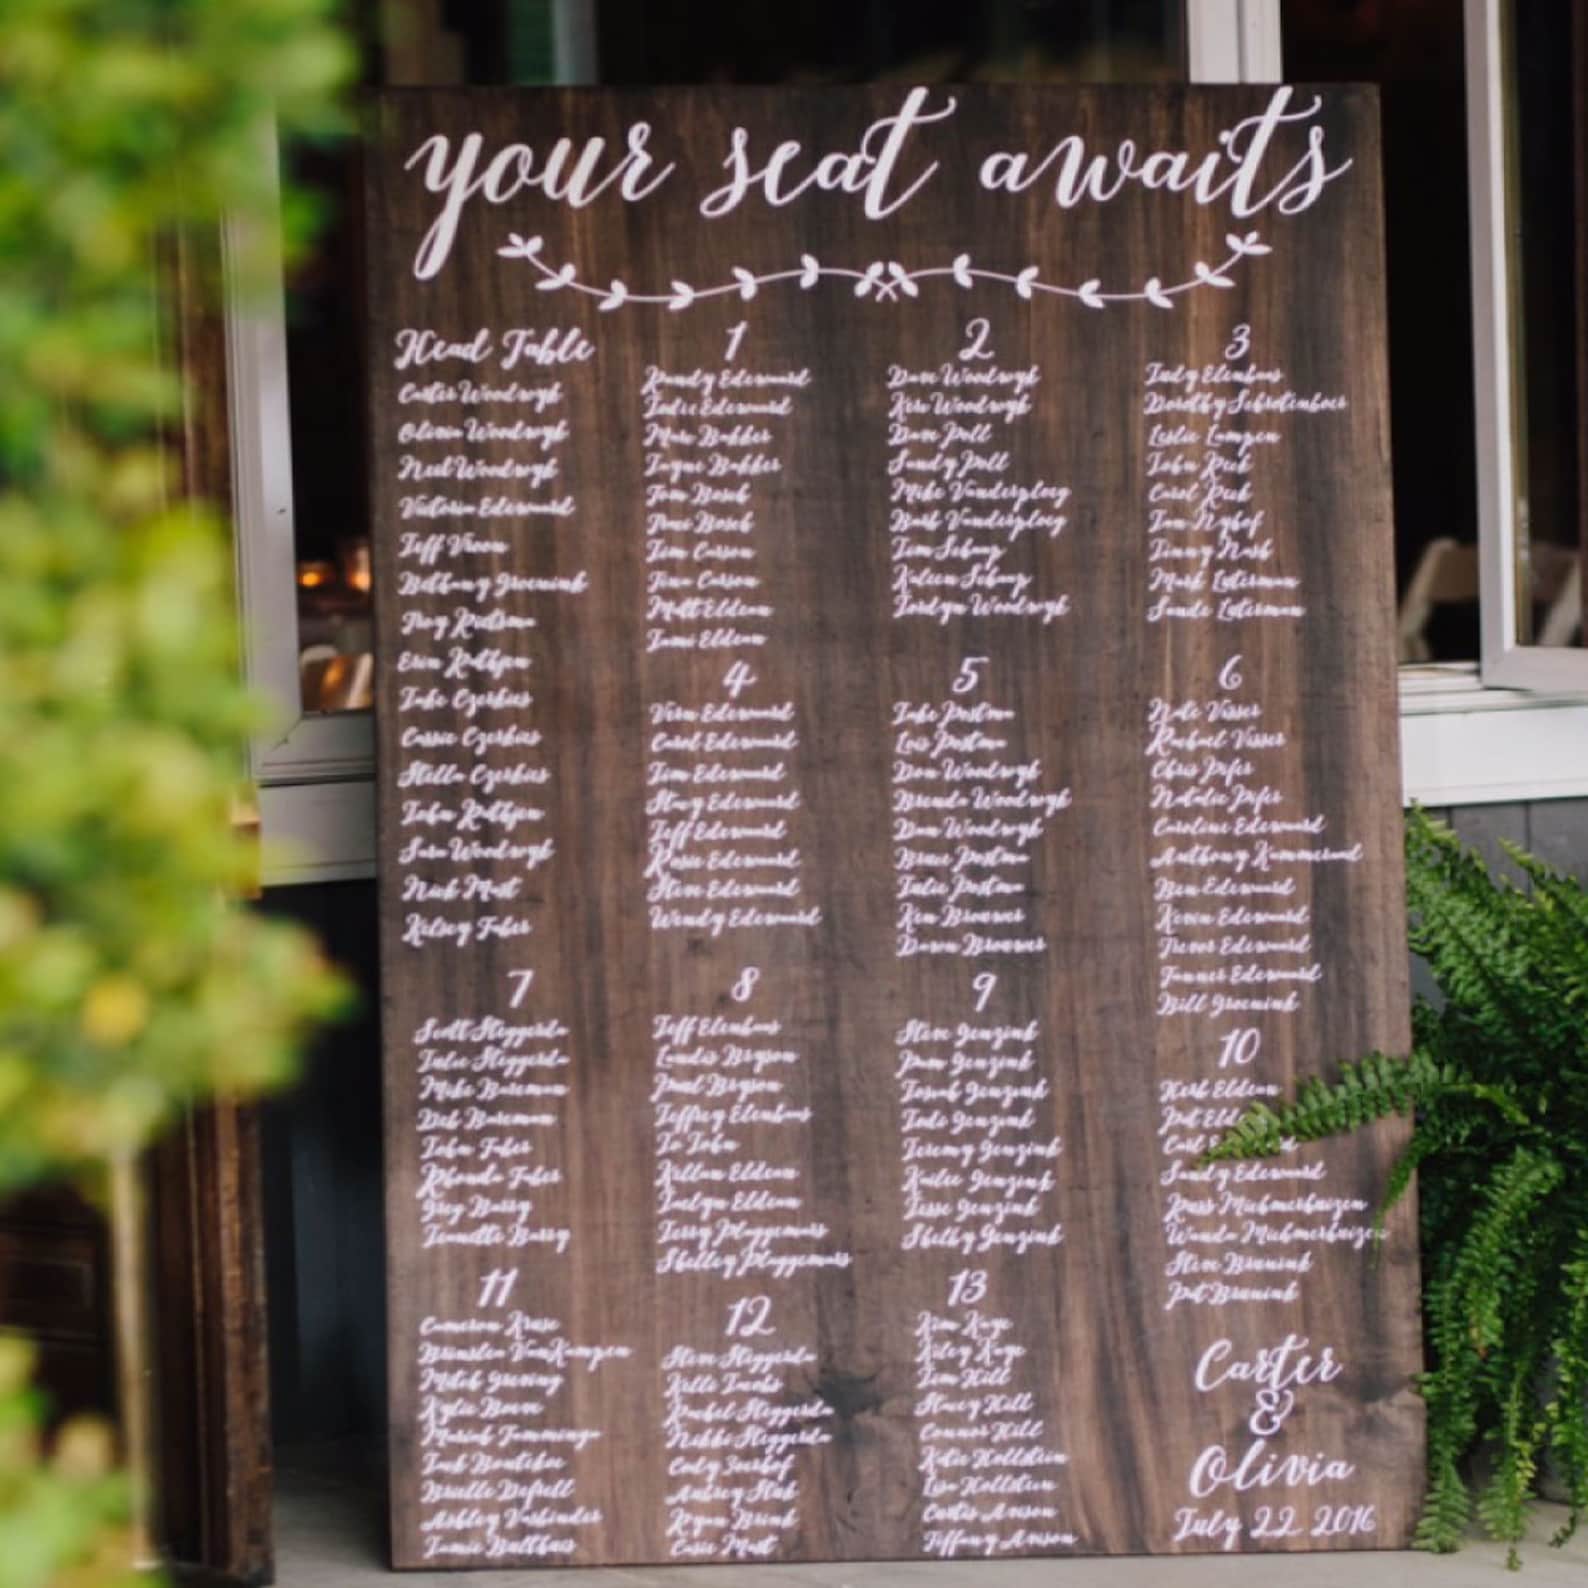 your seat awaits
Head Table
Carter Woodwyk
Olivia Woodwyk
Neal Woodwyk
Victoria Edewaard
Jeff Vroon
Bethany Groenink
Troy Postma
Erin Rathjen
Jake Czerkies
Cassie Czerkies
Stella Czerkies
John Rathjen
Sara Woodwyk
Nick Mast
Kelsey Faber
1
Randy Edewaard
Jodie Edewaard
Marc Bakker
Jayne Bakker
Tom Bosch
Bosch
Tim Carson
Tina Carson
Matt Eldean
Jami Eldean
2
Dave Woodwyk
Woodwyk
Dave Poll
Sandy Poll
Mike Vanderploeg
Barb Vanderploeg
Tim
Jordyn Woodwyk
3
Judy Elenbaas
Dorothy Schrotenboer
Leslie Lampen
John
Carol
Jan Nyhof
Mark Laterman
Sande Laterman
4
Vern Edewaard
Carol Edewaard
Jim Edewaard
Stacy Edewaard
Jeff Edewaard
Rosie Edewaard
Steve Edewaard
Wendy Edewaard
5
Jake Postma
Lois Postma
Don Woodwyk
Brenda Woodwyk
Dan Woodwyk
Bruce Postma
Julie Postma
Ken Brouwer
Dawn Brouwer
6
Nate Visser
Rachael Visser
Chris Pifer
Natalie Pifer
Caroline Edewaard
Anthony Kammeraad
Ben Edewaard
Kevin Edewaard
Trevor Edewaard
Tanner Edewaard
Bill Groenink
7
Scott Steggerda
Julie Steggerda
Mike Bareman
Deb Bareman
John Faber
Rhonda Faber
Greg Barry
Jeanette Barry
8
Jeff Elenbaas
Landis Bryson
Paul Bryson
Jeffrey Elenbaas
Jo John
Killian Eldean
Jaelyn Eldean
Terry Plaggemars
Shelley Plaggemars
9
Steve Genzink
Pam Genzink
Josiah Genzink
Jade Genzink
Jeremy Genzink
Kailee Genzink
Jesse Genzink
Shelby Genzink
10
Herb Eldean
Pat
Carl
Sandy Edewaard
Russ Michmerhuizen
Wanda Michmerhuizen
Steve Brunink
Pat Brunink
11
Cameron Kruse
Brenden VanKampen
Mitch
Kylie
Mariah Tamminga
Zach Bontekoe
Brielle DeFrell
Ashley Vanbinder
Jamie Balthuis
12
Steve Steggerda
Kelli Jacobs
Rachel Steggerda
Nikki Steggerda
Cody
Aubrey
Ryan Brink
Casie Mast
13
Kim Kaye
Riley Kaye
Tim Hill
Stacey Hill
Connor Hill
Katie Hollstein
Lisa Hollstein
Curtis Anison
Tiffany Anison
Carter
&
Olivia
July 22 2016